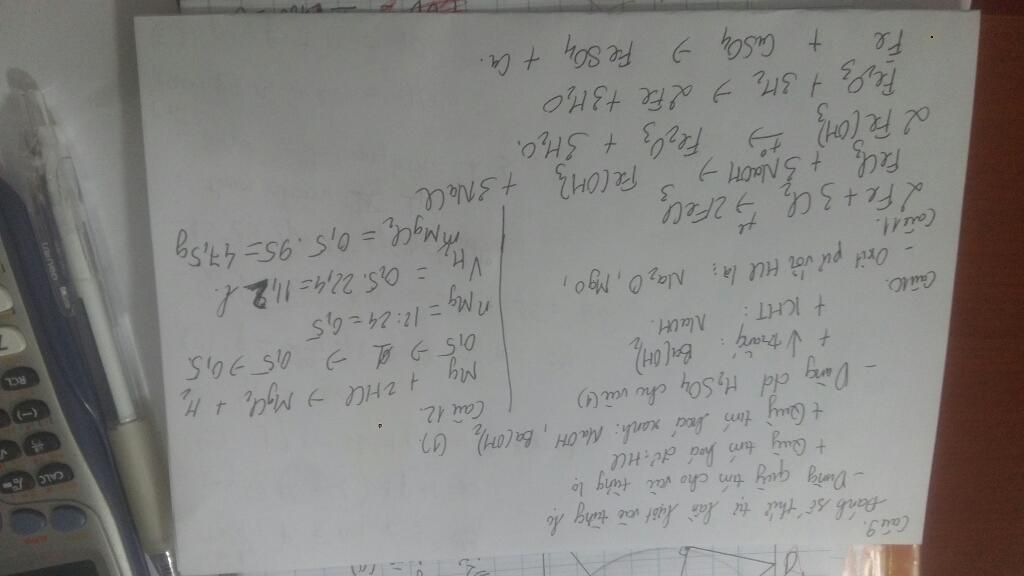 Câu 9.
Đánh số thứ tự lần lượt vào từng lọ
- Dùng quỳ tím cho vào từng lọ
+ Quỳ tím hoá đỏ: HCl
+ Quỳ tím hoá xanh: NaOH, Ba(OH)2 (1)
- Dùng dd H2SO4 cho vào (1)
+ ↓ trắng: Ba(OH)2
+ KHT: NaOH.
Câu 10.
- Oxit pư với HCl là: Na2O, MgO,
Câu 11.
2Fe + 3Cl2 t° → 2FeCl3
FeCl3 + 3NaOH → Fe(OH)3 + 3NaCl
2Fe(OH)3 t° → Fe2O3 + 3H2O.
Fe2O3 + 3H2 → 2Fe + 3H2O
Fe + CuSO4 → FeSO4 + Cu.
Câu 12.
Mg + 2HCl → MgCl2 + H2
0,5 → 1 → 0,5 → 0,5
nMg = 12 : 24 = 0,5
VH2 = 0,5 . 22,4 = 11,2 l.
mMgCl2 = 0,5 . 95 = 47,5g
RCL
(-)
CALC